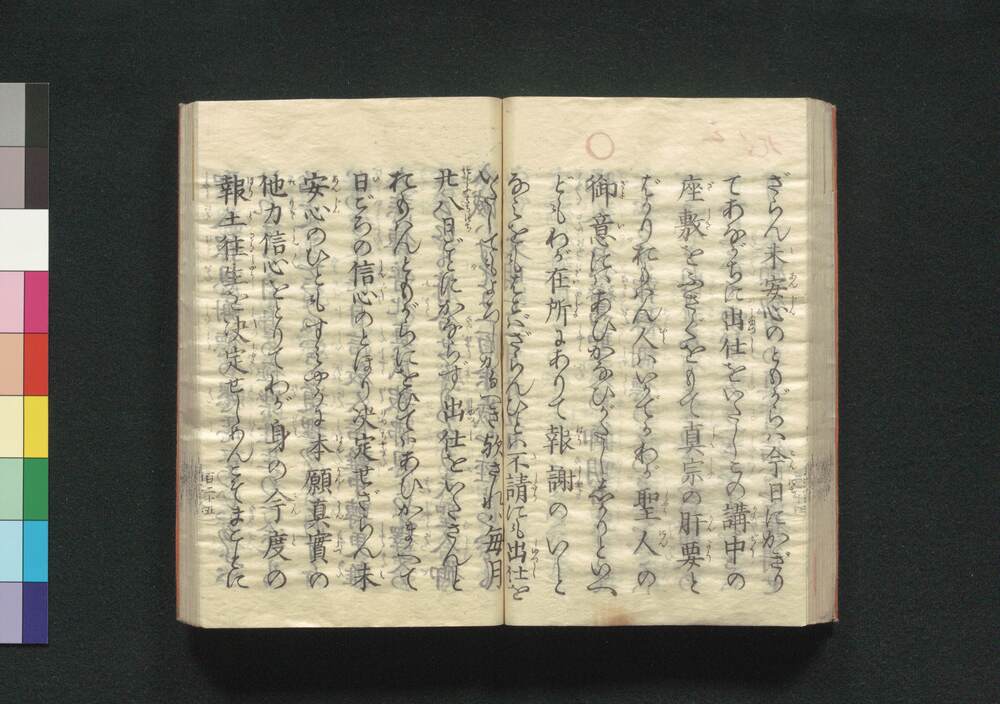 ざらん未安心のともがらは今日にかぎり
てあながちに出仕をいたしこの講中の
座敷をふさぐをもて真宗の肝要と
ばかりおもはん人はいかでかわが聖人の
御意にはあひかなひがたししかりといへ
どもわが在所にありて報謝のいとな
みをもはこばざらんひとは不請にも出仕を
いたしてもよろしかるべき歟されば毎月
廿八日ごとにかならず出仕をいたさんと
おもはんともがらにをひてはあひかまへて
日ごろの信心のとほり決定せざらん未
安心のひともすみやかに本願真實の
他力信心をとりてわが身の今度の
報土往生を決定せしめんこそまことに
百二十五